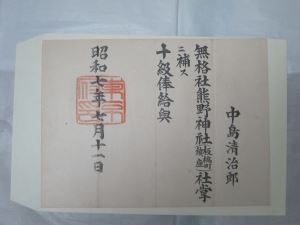 中島清治郎
無格社熊野神社板橋町社掌
ニ補ス
十級俸給與
昭和七年七月十一日